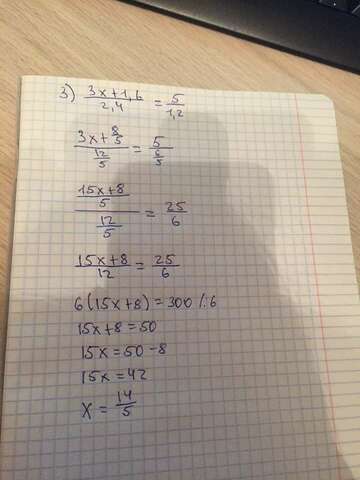 3) (3x+1,6)/(2,4) = 5/(1,2)
(3x+8/5)/(12/5) = 5/(6/5)
((15x+8)/5)/(12/5) = 25/6
(15x+8)/12 = 25/6
6(15x+8)=300 /:6
15x+8=50
15x=50-8
15x=42
x=14/5